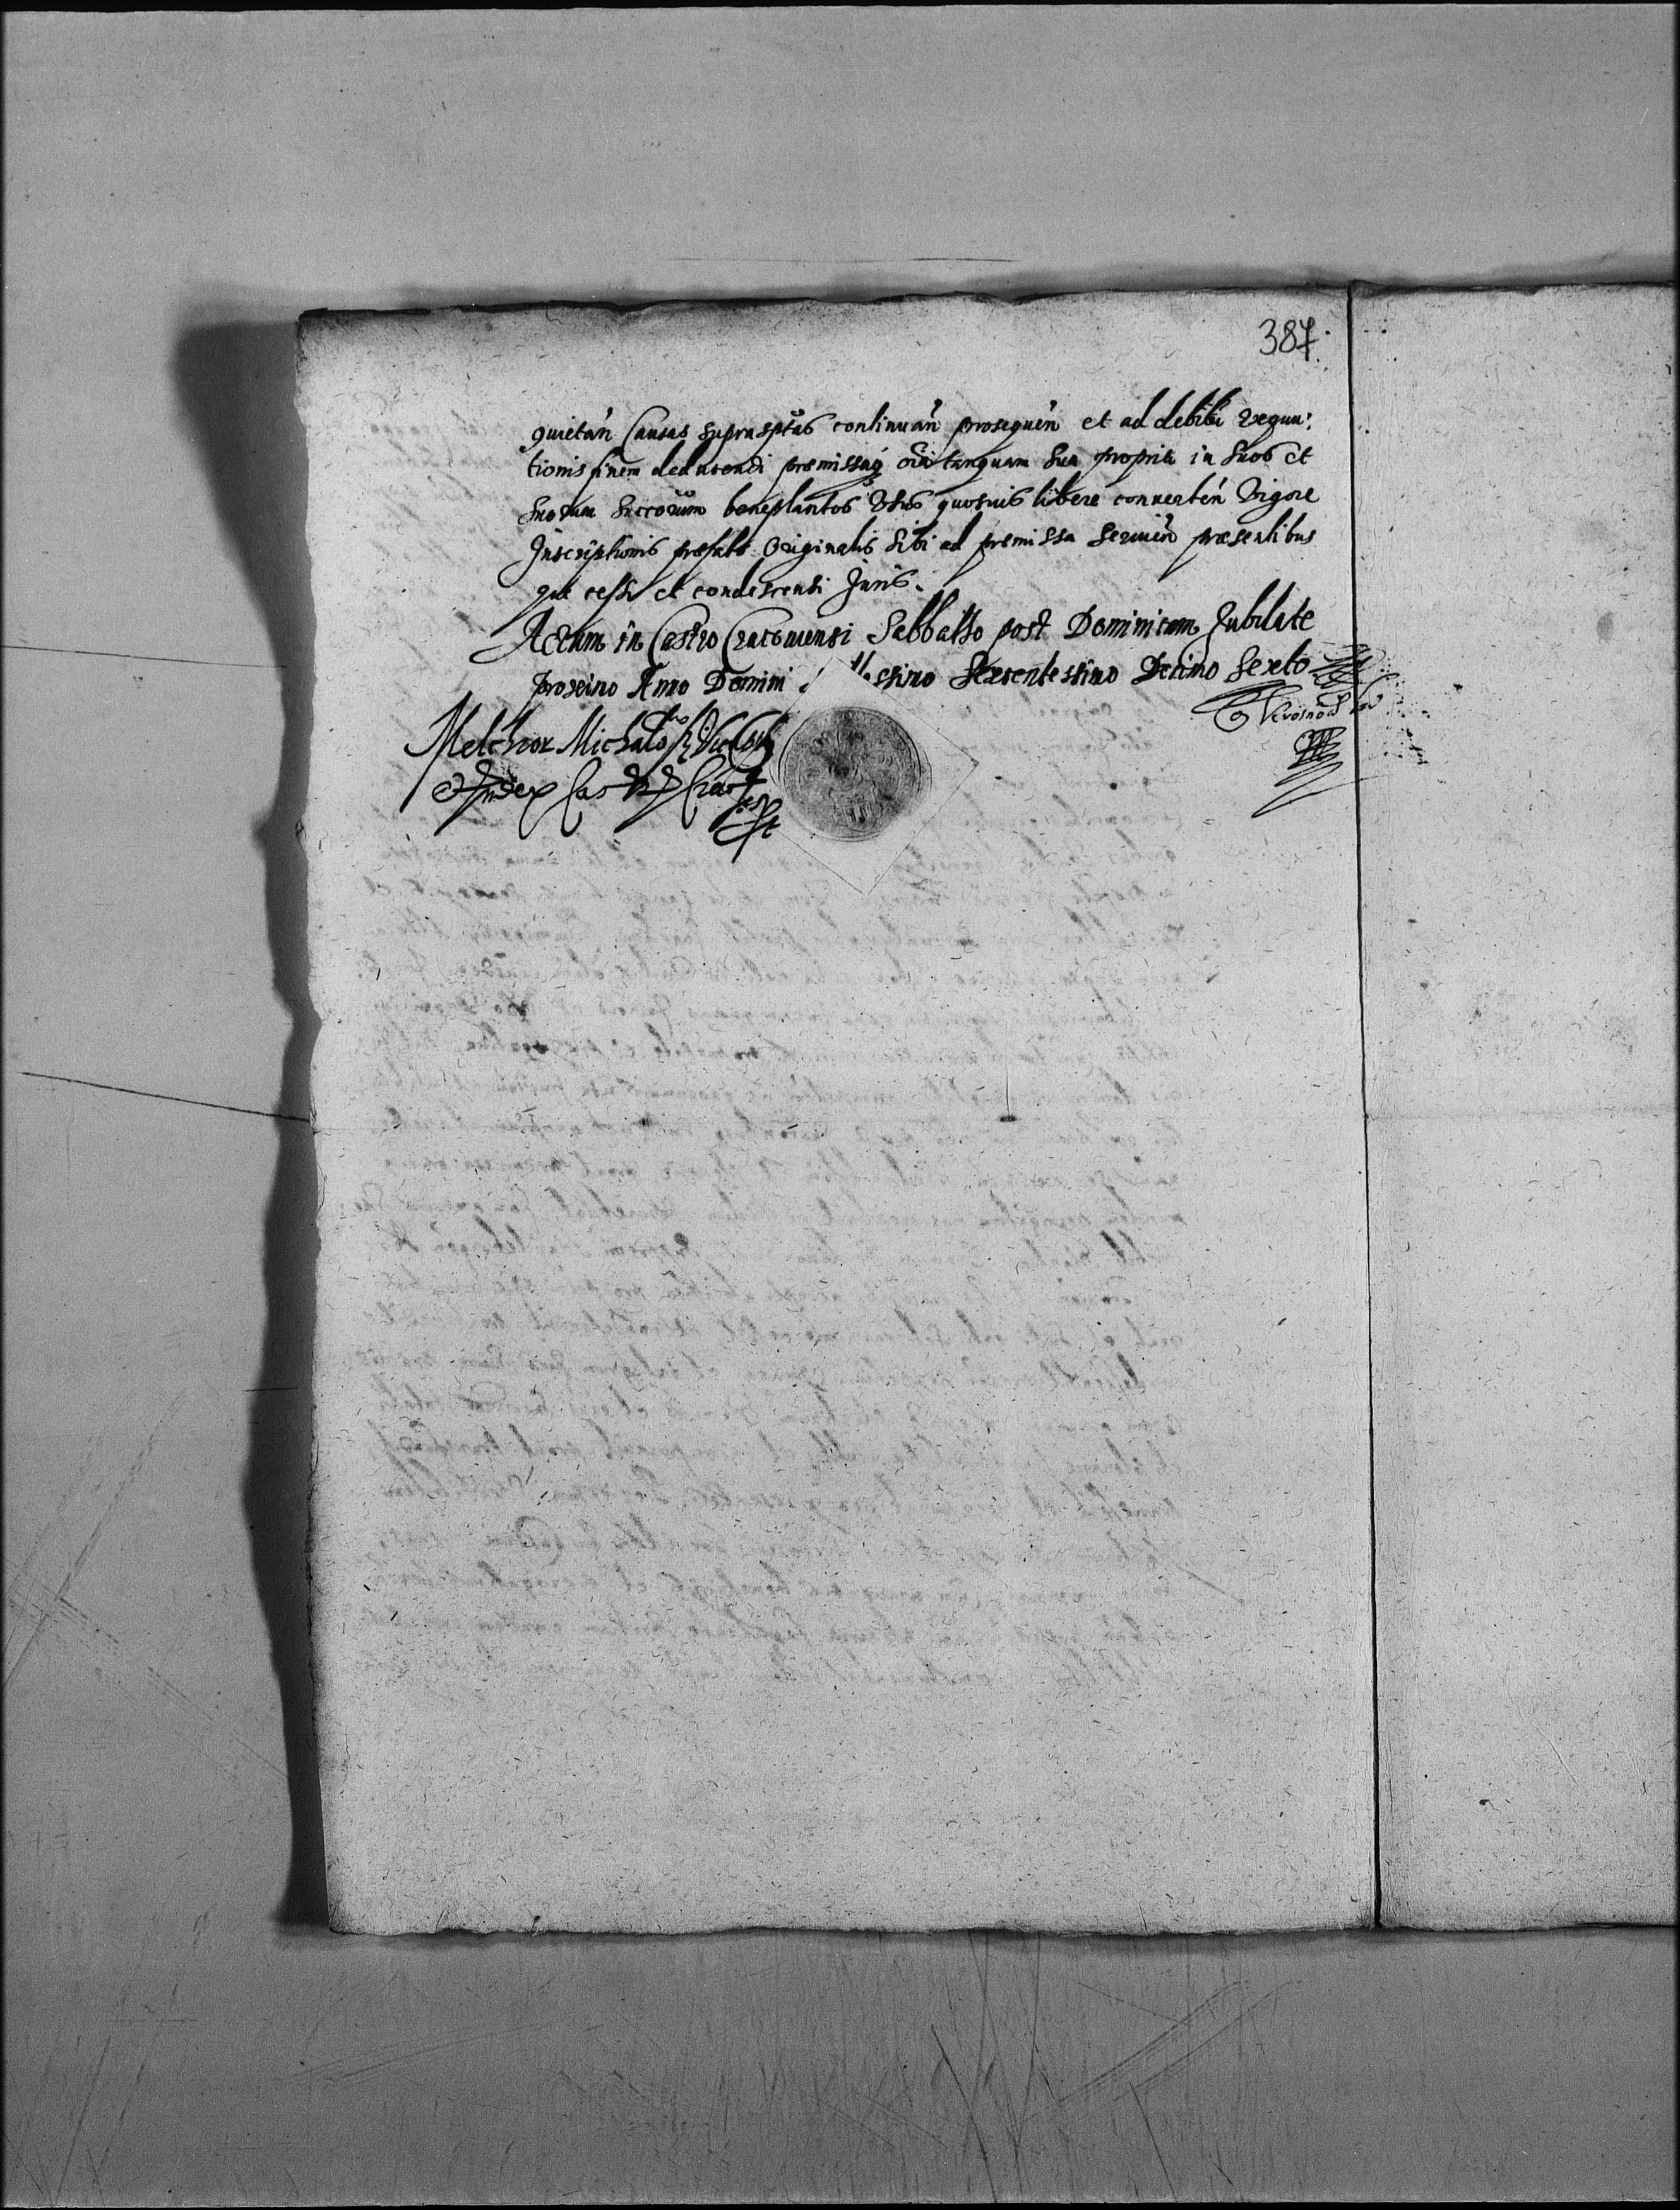 387.
quietan̄ Causas suprasptas continuan̄ prosequen̄ et ad debitū exequu:
tionis finem deducendi premissaq oīa tanquam sua propria in suos et
suorum succorum beneplacitos Usus quosuis libere conuerten̄ Vigore
Inscriptionis prefate Originalis sibi ad premissa seruien̄ presentibus
que cessi et condescensi Juris.
Actum in Castro Cracouiensi Sabbatho post Dominicam Jubilate
proximo Anno Domini llesimo Sexcentessimo Decimo Sexto
Melchior Michalo
et Judex Cas Crac